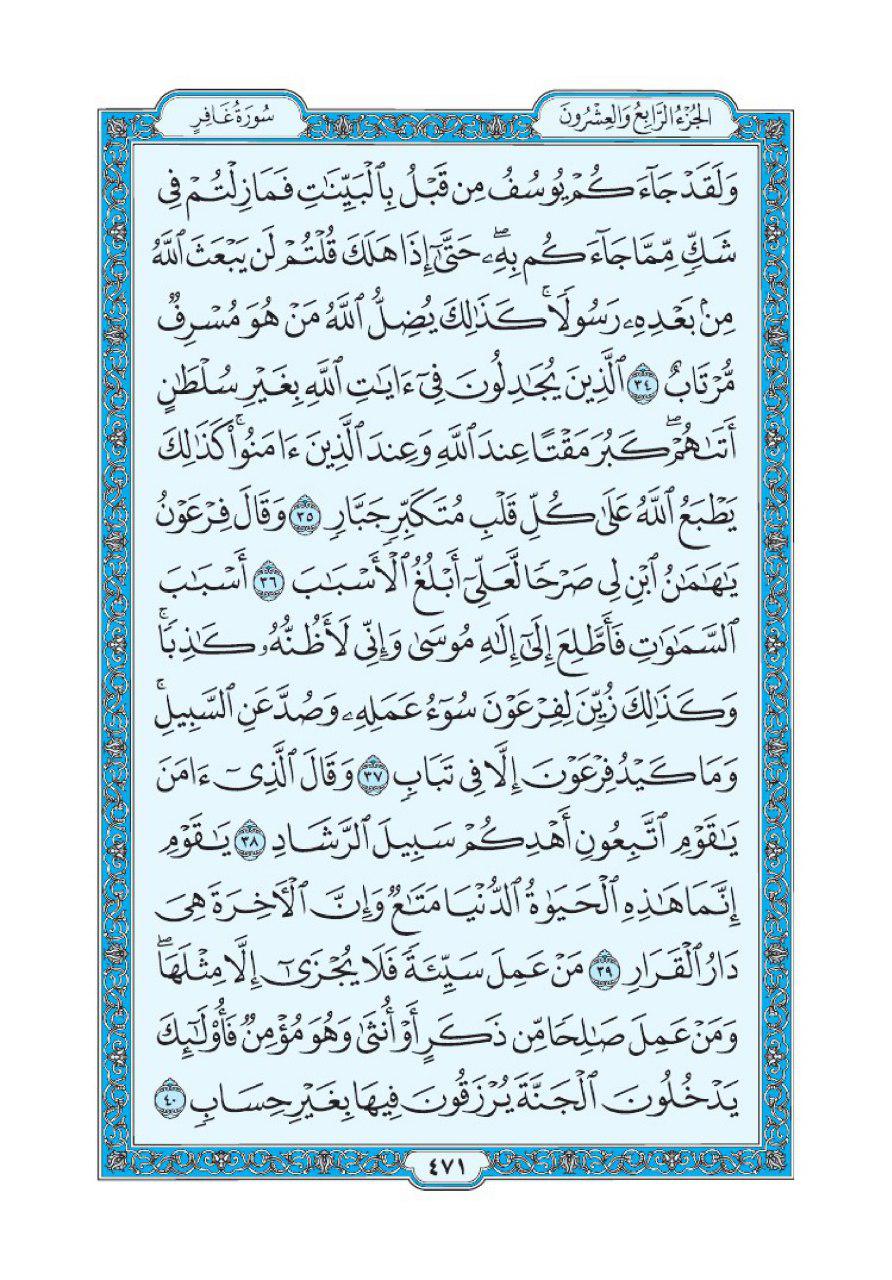 الجُزْءُ الرَّابِعُ وَالعِشْرُونَ
سُورَةُ غَافِرٍ
وَلَقَدۡ جَآءَكُمۡ يُوسُفُ مِن قَبۡلُ بِٱلۡبَيِّنَٰتِ فَمَا زِلۡتُمۡ فِي
شَكّٖ مِّمَّا جَآءَكُم بِهِۦۖ حَتَّىٰٓ إِذَا هَلَكَ قُلۡتُمۡ لَن يَبۡعَثَ ٱللَّهُ
مِنۢ بَعۡدِهِۦ رَسُولٗاۚ كَذَٰلِكَ يُضِلُّ ٱللَّهُ مَنۡ هُوَ مُسۡرِفٞ
مُّرۡتَابٌ ٣٤ ٱلَّذِينَ يُجَٰدِلُونَ فِيٓ ءَايَٰتِ ٱللَّهِ بِغَيۡرِ سُلۡطَٰنٍ
أَتَىٰهُمۡۖ كَبُرَ مَقۡتًا عِندَ ٱللَّهِ وَعِندَ ٱلَّذِينَ ءَامَنُواْۚ كَذَٰلِكَ
يَطۡبَعُ ٱللَّهُ عَلَىٰ كُلِّ قَلۡبِ مُتَكَبِّرٖ جَبَّارٖ ٣٥ وَقَالَ فِرۡعَوۡنُ
يَٰهَٰمَٰنُ ٱبۡنِ لِي صَرۡحٗا لَّعَلِّيٓ أَبۡلُغُ ٱلۡأَسۡبَٰبَ ٣٦ أَسۡبَٰبَ
ٱلسَّمَٰوَٰتِ فَأَطَّلِعَ إِلَىٰٓ إِلَٰهِ مُوسَىٰ وَإِنِّي لَأَظُنُّهُۥ كَٰذِبٗاۚ
وَكَذَٰلِكَ زُيِّنَ لِفِرۡعَوۡنَ سُوٓءُ عَمَلِهِۦ وَصُدَّ عَنِ ٱلسَّبِيلِۚ
وَمَا كَيۡدُ فِرۡعَوۡنَ إِلَّا فِي تَبَابٖ ٣٧ وَقَالَ ٱلَّذِيٓ ءَامَنَ
يَٰقَوۡمِ ٱتَّبِعُونِ أَهۡدِكُمۡ سَبِيلَ ٱلرَّشَادِ ٣٨ يَٰقَوۡمِ
إِنَّمَا هَٰذِهِ ٱلۡحَيَوٰةُ ٱلدُّنۡيَا مَتَٰعٞ وَإِنَّ ٱلۡأٓخِرَةَ هِيَ
دَارُ ٱلۡقَرَارِ ٣٩ مَنۡ عَمِلَ سَيِّئَةٗ فَلَا يُجۡزَىٰٓ إِلَّا مِثۡلَهَاۖ
وَمَنۡ عَمِلَ صَٰلِحٗا مِّن ذَكَرٍ أَوۡ أُنثَىٰ وَهُوَ مُؤۡمِنٞ فَأُوْلَٰٓئِكَ
يَدۡخُلُونَ ٱلۡجَنَّةَ يُرۡزَقُونَ فِيهَا بِغَيۡرِ حِسَابٖ ٤٠
٤٧١